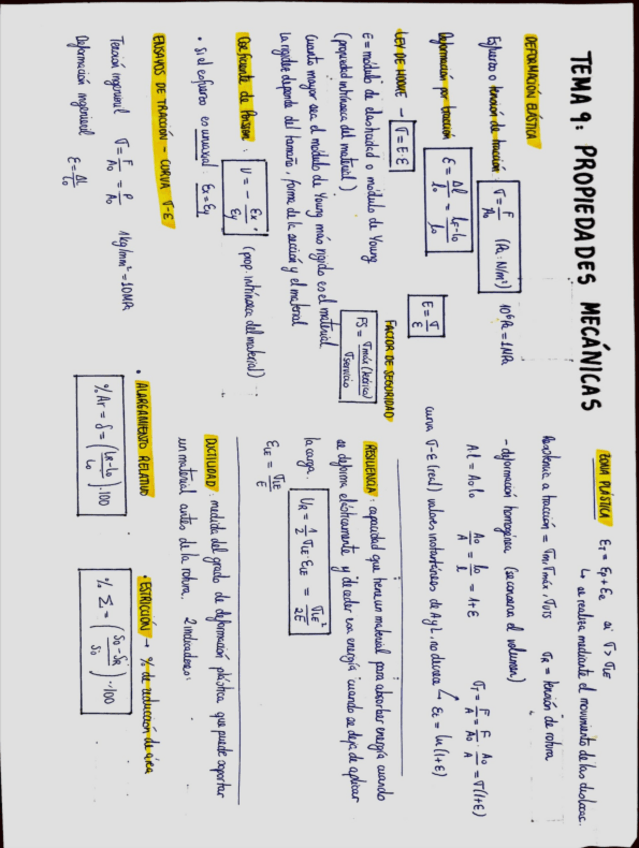 TEMA 9: PROPIEDADES MECÁNICAS
DEFORMACIÓN ELÁSTICA
Esfuerzo o tensión de tracción: σ = F/A₀ (Pa: N/m²) 10⁶ Pa = 1 MPa
Deformación por tracción ε = Δl/l₀ = (lF - l₀)/l₀
LEY DE HOOKE → σ = E·ε E = σ/ε
E = módulo de elasticidad o módulo de Young
(propiedad intrínseca del material)
Cuanto mayor sea el módulo de Young más rígido es el material
La rigidez depende del tamaño, forma de la sección y el material
FACTOR DE SEGURIDAD
FS = σmáx (teórica)/σservicio
Coeficiente de Poisson: ν = - εx/εy, (prop. intrínseca del material)
• si el esfuerzo es uniaxial: εx = εy
ENSAYOS DE TRACCIÓN - CURVA σ-ε
Tensión ingenieril σ = F/A₀ = P/A₀ 1kg/mm² = 10MPa
Deformación ingenieril ε = Δl/l₀
ZONA PLÁSTICA εT = εp + εe si σ > σLE
↳ se realiza mediante el movimiento de las dislocac.
Resistencia a tracción = σm, σmáx, σUTS σR = tensión de rotura
- deformación homogénea (se conserva el volumen)
Al = A₀l₀ A₀/A = l/l₀ = 1+ε σT = F/A = F/A₀ · A₀/A = σ(1+ε)
curva σ-ε (real) valores instantáneos de A y L. no decrece ↳ εt = ln(1+ε)
RESILIENCIA: capacidad que tiene un material para absorber energía cuando
se deforma elásticamente y de ceder esa energía cuando se deja de aplicar
la carga. UR = 1/2 σLE·εLE = σLE²/2E
εLE = σLE/E
DUCTILIDAD: medida del grado de deformación plástica que puede soportar
un material antes de la rotura. 2 indicadores:
• ALARGAMIENTO RELATIVO
%Ar = δ = ((LR - L₀)/L₀)·100
• ESTRICCIÓN → % de reducción de área
% Σ = ((S₀ - SR)/S₀)·100